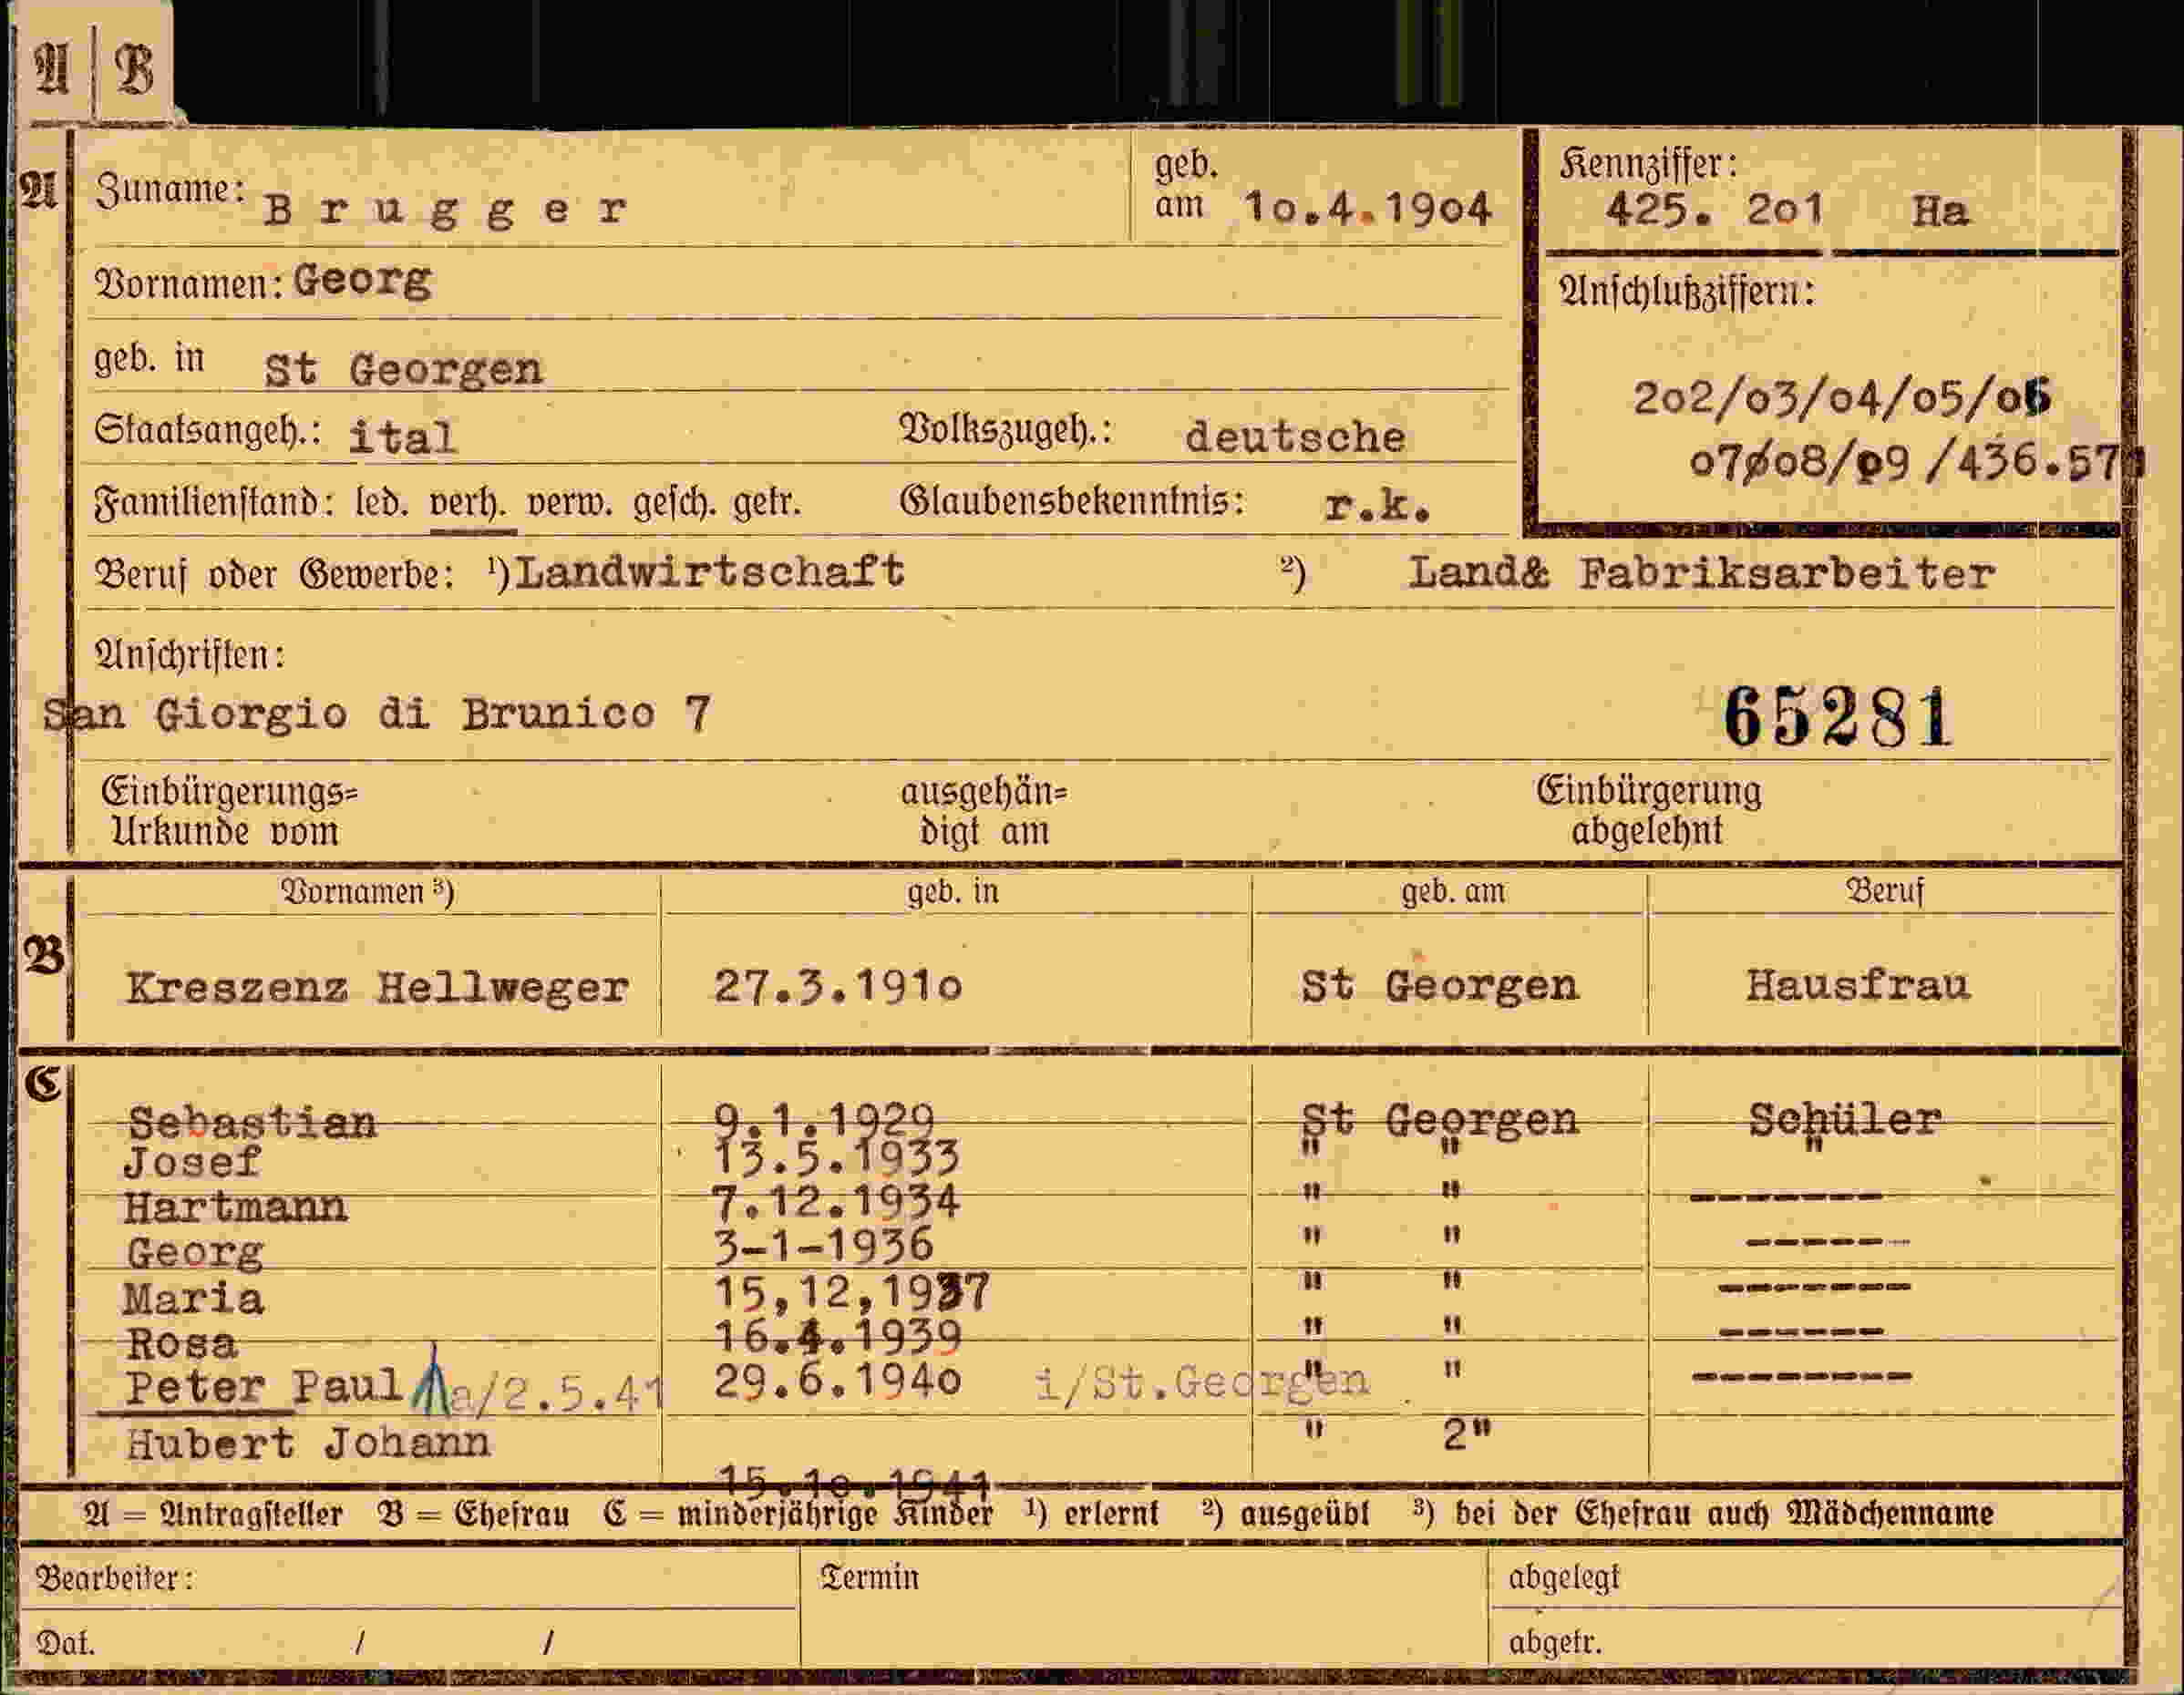 A | B
A Zuname: Brugger geb. am 10.4.1904 Kennziffer: 425. 201 Ha
Vornamen: Georg Anschlußziffern:
geb. in St Georgen
202/03/04/05/06
Staatsangeh.: ital Volkszugeh.: deutsche
07/08/09 /436.57
Familienstand: led. verh. verw. gesch. getr. Glaubensbekenntnis: r.k.
Beruf oder Gewerbe: ¹)Landwirtschaft ²) Land& Fabriksarbeiter
Anschriften:
San Giorgio di Brunico 7 65281
Einbürgerungs= ausgehän= Einbürgerung
Urkunde vom digt am abgelehnt
Vornamen ³) geb. in geb. am Beruf
B Kreszenz Hellweger 27.3.1910 St Georgen Hausfrau
C
Sebastian 9.1.1929 St Georgen Schüler
Josef 13.5.1933 " " "
Hartmann 7.12.1934 " " -------
Georg 3-1-1936 " " ------
Maria 15,12,1937 " " -------
Rosa 16.4.1939 " " ------
Peter Paul a/2.5.41 29.6.1940 i/St.Georgen " " --------
Hubert Johann " 2"
15.10.1941
A = Antragsteller B = Ehefrau C = minderjährige Kinder ¹) erlernt ²) ausgeübt ³) bei der Ehefrau auch Mädchenname
Bearbeiter: Termin abgelegt
Dat. / / abgetr.